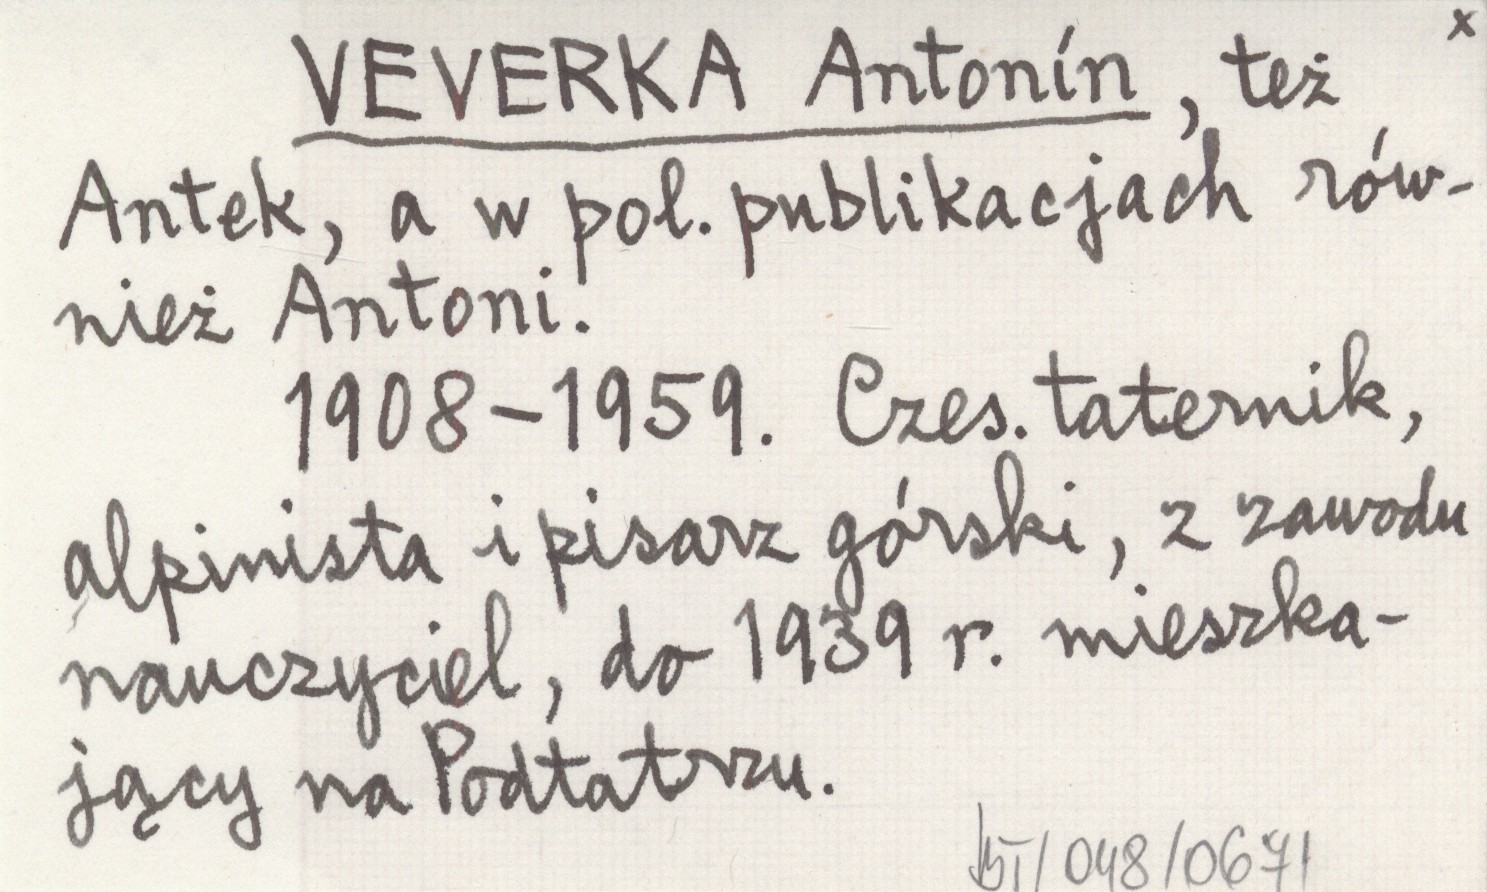 x
VEVERKA Antonín, też
Antek, a w pol. publikacjach rów-
nież Antoni.
1908-1959. Czes. taternik,
alpinista i pisarz górski, z zawodu
nauczyciel, do 1939 r. mieszka-
jący na Podtatrzu.
/048/0671